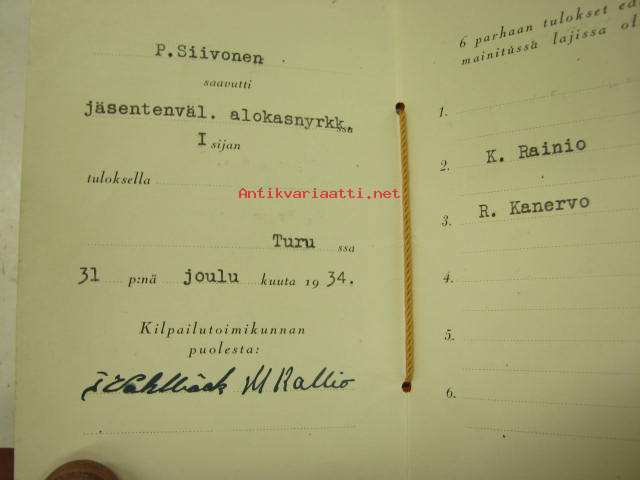 P.Siivonen
saavutti
jäsentenväl. alokasnyrkk.ssa
I sijan
tuloksella
Turu ssa
31 p:nä joulu kuuta 19 34.
Kilpailutoimikunnan
puolesta:
M Kallio
6 parhaan tulokset
mainitussa lajissa
1.
2. K. Rainio
3. R. Kanervo
4.
5.
6.
Antikvariaatti.net